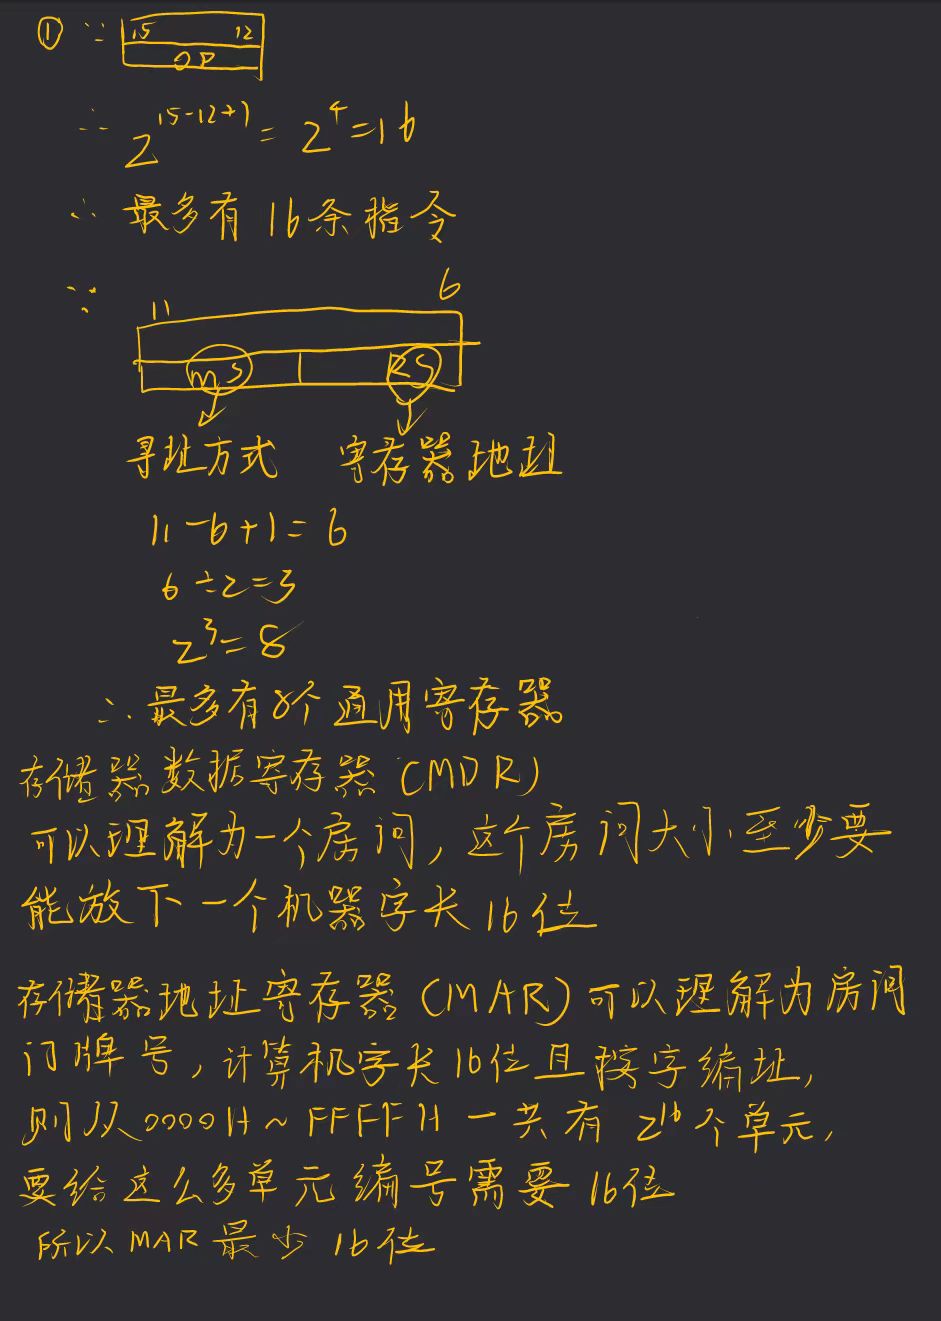 ① ∵ 15 12
OP
∴ 2^{15-12+1} = 2^4 = 16
∴ 最多有 16条指令
∵ 11 6
MS RS
寻址方式 寄存器地址
11-6+1=6
6÷2=3
2^3=8
∴ 最多有8个通用寄存器
存储器数据寄存器(MDR)
可以理解为一个房间,这个房间大小至少要
能放下一个机器字长16位
存储器地址寄存器(MAR)可以理解为房间
门牌号,计算机字长16位且按字编址,
则从0000H~FFFFH一共有 2^{16}个单元,
要给这么多单元编号需要16位
所以MAR最少16位